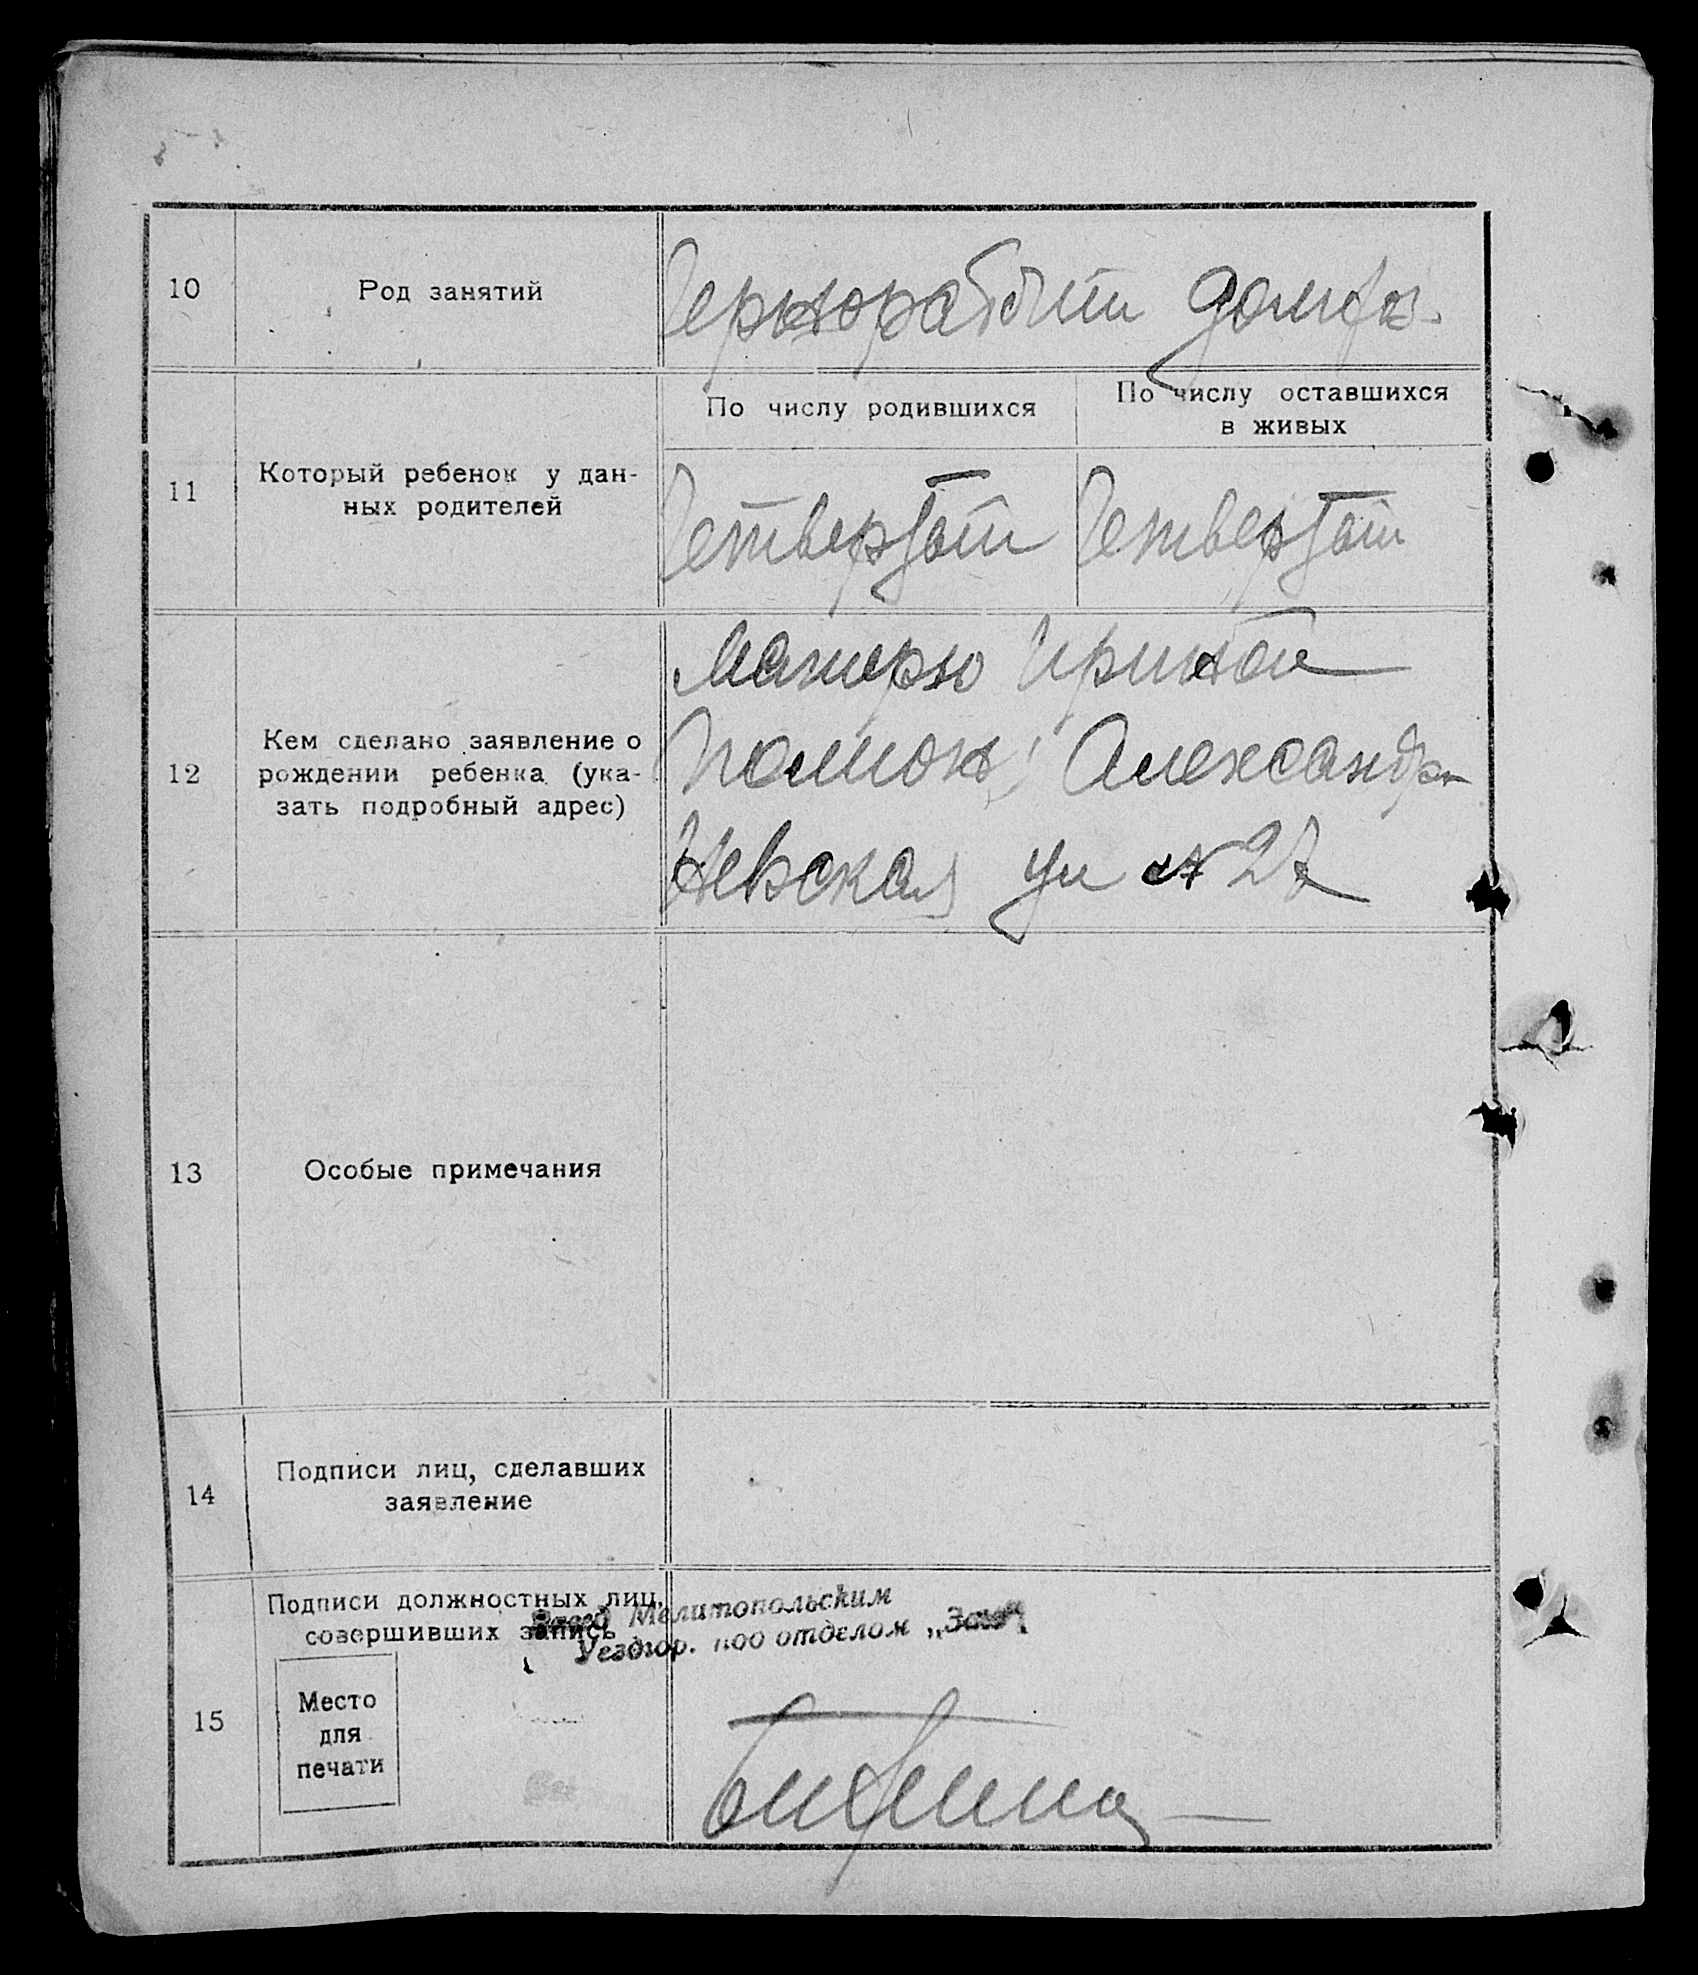 10 Род занятий Чернорабочий домхоз.
11 Который ребенок у дан-
ных родителей
По числу родившихся
По числу оставшихся
в живых
Четвертый Четвертый
12 Кем сделано заявление о
рождении ребенка (ука-
зать подробный адрес)
Матерью Ириной
Александр
Невская ул № 27
13 Особые примечания
14 Подписи лиц, сделавших
заявление
15 Подписи должностных лиц,
совершивших запись
Завед Мелитопольским
Уездгор. под отделом „Загс"
Место
для
печати